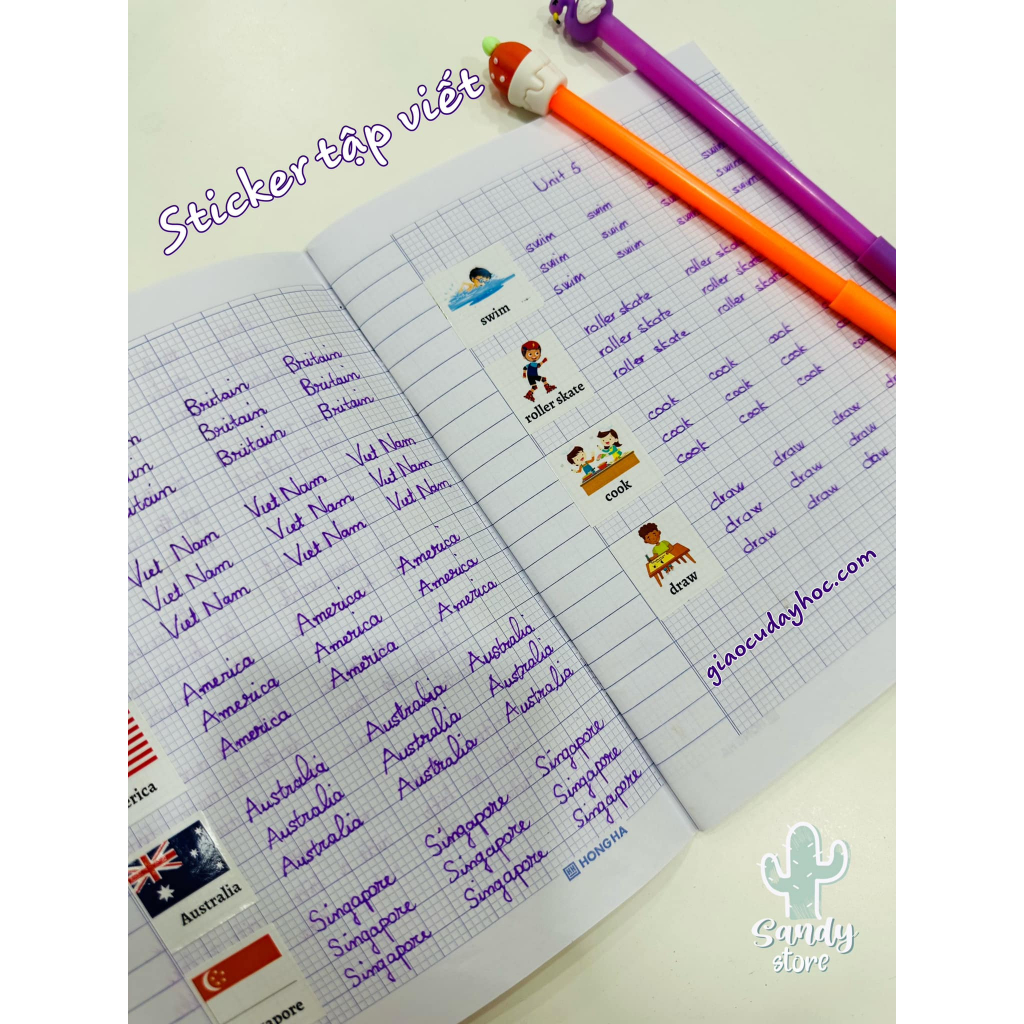 Sticker tập viết
Britain Britain
Britain Britain
Britain Britain
Viet Nam Viet Nam Viet Nam
Viet Nam Viet Nam Viet Nam
Viet Nam Viet Nam Viet Nam
America America America
America America America
America America America
Australia Australia Australia
Australia Australia Australia
Australia Australia Australia
Australia
Singapore Singapore Singapore
Singapore Singapore Singapore
Singapore Singapore Singapore
HONG HA
Unit 5
swim swim
swim swim
swim swim
swim
roller skate roller skate
roller skate roller skate
roller skate roller skate
roller skate
cook cook cook
cook cook cook
cook cook cook
cook
draw draw draw
draw draw draw
draw draw draw
draw
giaocudayhoc.com
Sandy
store